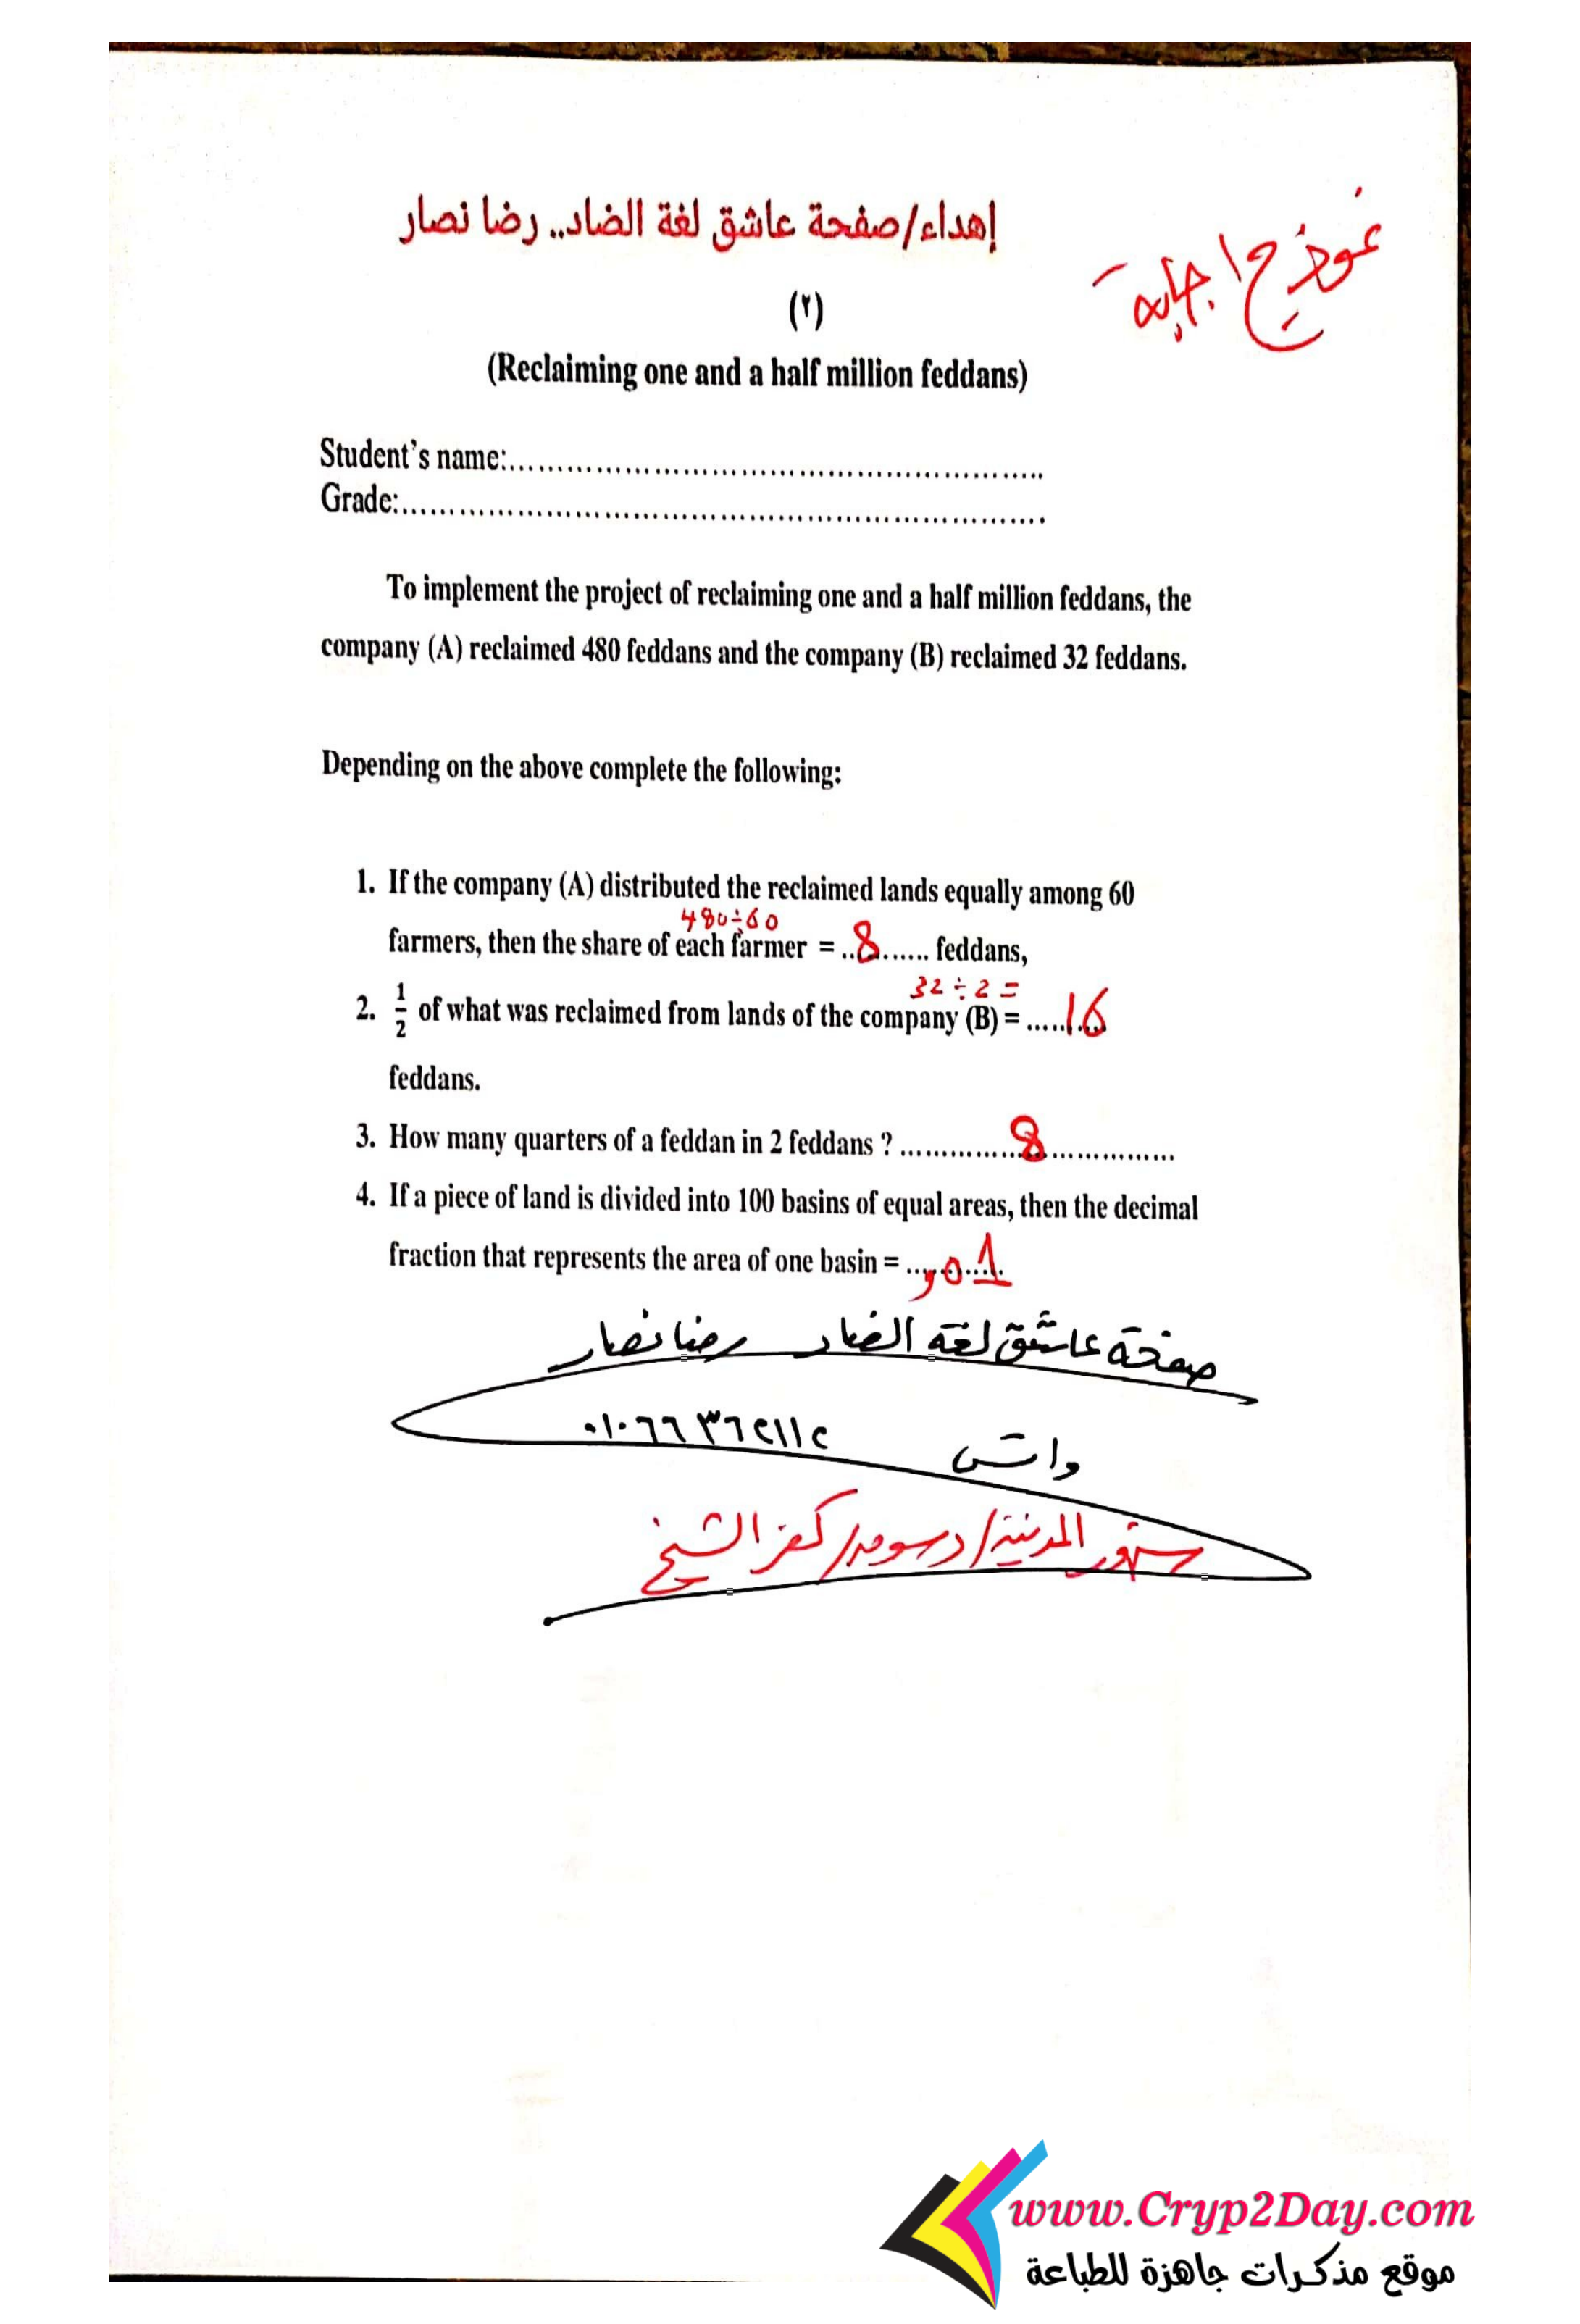 إهداء/صفحة عاشق لغة الضاد.. رضا نصار
نموذج اجابة
(٢)
(Reclaiming one and a half million feddans)
Student's name:.......................................................
Grade:...................................................................
To implement the project of reclaiming one and a half million feddans, the
company (A) reclaimed 480 feddans and the company (B) reclaimed 32 feddans.
Depending on the above complete the following:
1. If the company (A) distributed the reclaimed lands equally among 60
480÷60
farmers, then the share of each farmer = ..8...... feddans,
32÷2=
2. 1/2 of what was reclaimed from lands of the company (B) = .....16
feddans.
3. How many quarters of a feddan in 2 feddans ? ...............8...............
4. If a piece of land is divided into 100 basins of equal areas, then the decimal
fraction that represents the area of one basin = ...,01
صفحة عاشق لغة الضاد رضا نصار
واتس ٠١٠٦٦٣٦٢١١٢
سنهور المدينة/دسوق/كفر الشيخ
www.Cryp2Day.com
موقع مذكرات جاهزة للطباعة